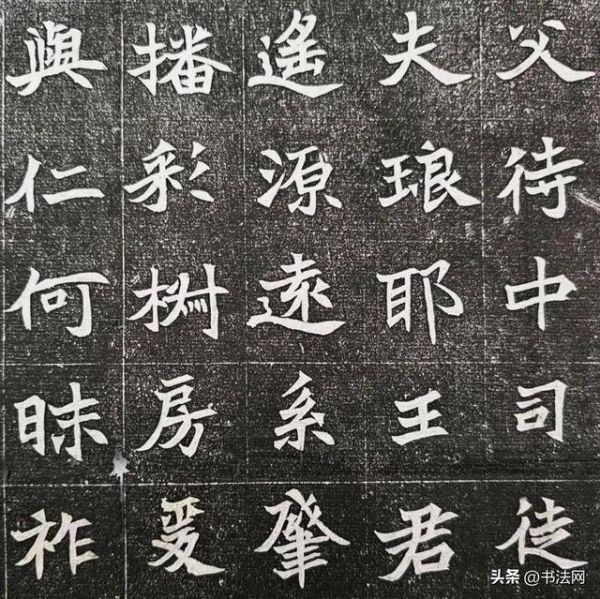 父待中司徒
夫琅耶王君
遙源遠系肇
播彩房爰
與仁何昧祚
头条@书法网